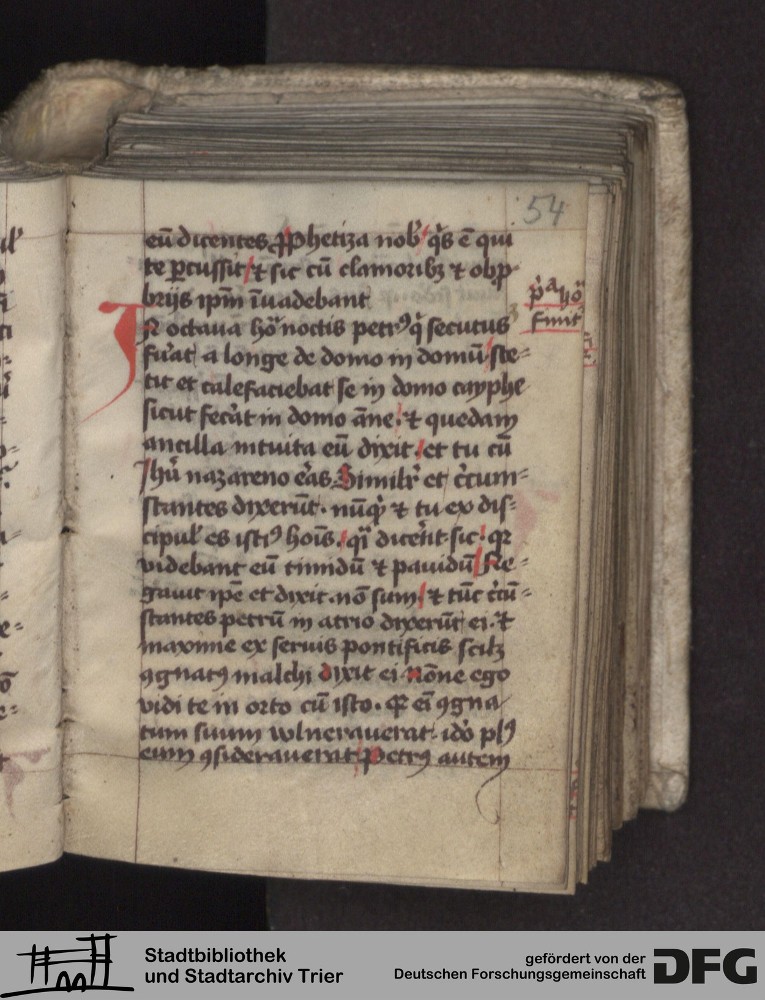 54
eū dicentes ꝓphetiza nob̄ q̇s ē qui
te ꝑcussit ⁊ sic cū clamoribꝫ ⁊ obp̱-
brijs ip̄m īuadebant
In octaua ho͞ noctis petrꝰ q̇ secutus
fu̓at a longe de domo in domū ste-
tit et calefaciebat se in domo cayphe
sicut fec̓at in domo a̅ne. ⁊ quedam
ancilla intuita eū dixit. et tu cū
Jhū nazareno e̓as. Simil̓r et c̓cum-
stantes dixerūt. nūq̇ ⁊ tu ex dis-
cipul̓ es istiꝰ hoīs. qȝ dice̓nt sic. qꝛ
videbant eū timidū ⁊ pauidū Ne-
gauit ip̄e et dixit. nō sum. ⁊ tūc c̓cū-
stantes petrū in atrio dixerūt ei. ⁊
maxime ex seruis pontificis scilꝫ
ꝯgnatꝰ malchi dixit ei nōne ego
vidi te in orto cū isto. qꝛ ei̅ ꝯgna
tum suum wlnerauerat. id̓o plꝰ
eum ꝯsiderauerat Petrꝰ autem
finit̓
Stadtbibliothek
und Stadtarchiv Trier
gefördert von der
Deutschen Forschungsgemeinschaft
DFG